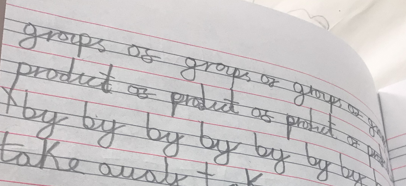 groups of groups of groups of
product of product of product of
by by by by by by by
take away